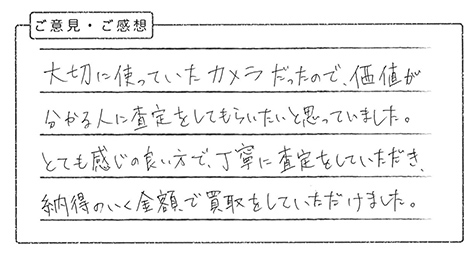 ご意見・ご感想
大切に使っていたカメラだったので、価値が
分かる人に査定をしてもらいたいと思っていました。
とても感じの良い方で、丁寧に査定をしていただき、
納得のいく金額で買取をしていただけました。